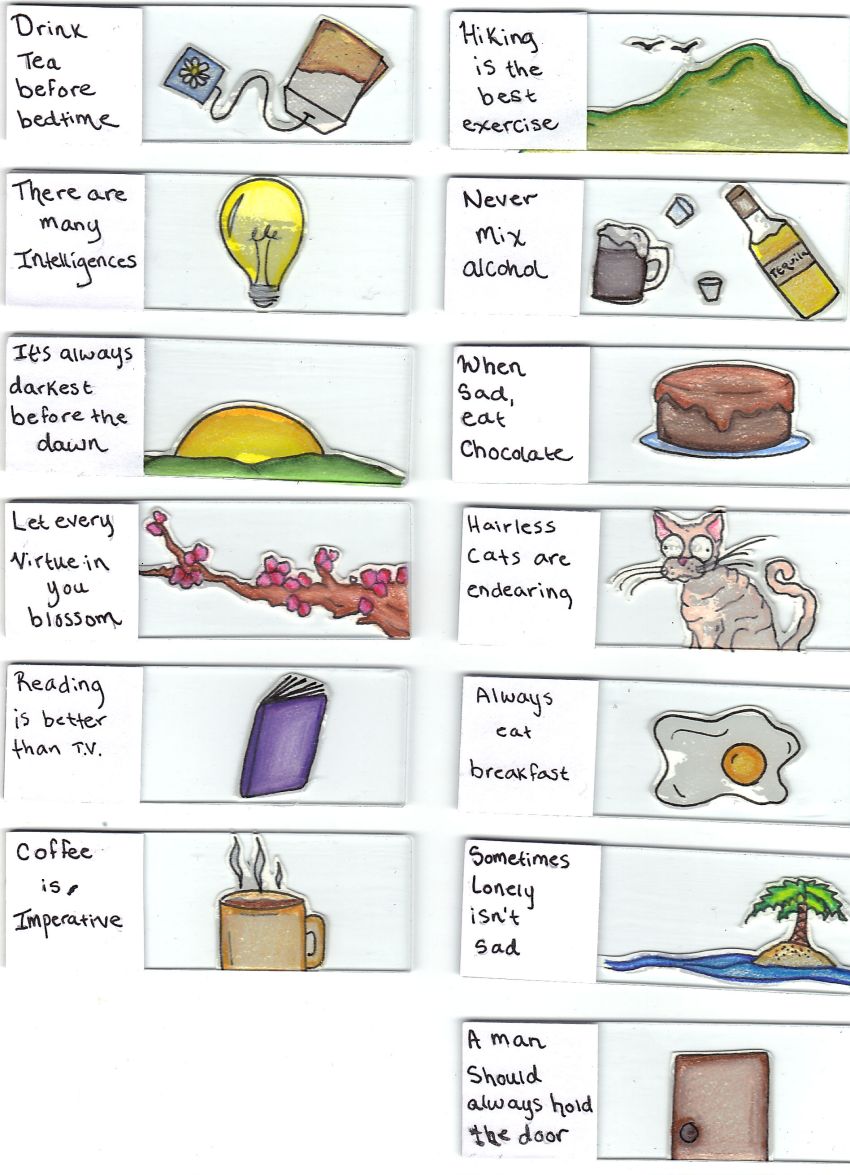 Drink
Tea
before
bedtime
There are
many
Intelligences
It's always
darkest
before the
dawn
Let every
Virtue in
you
blossom
Reading
is better
than T.V.
Coffee
is
Imperative
Hiking
is the
best
exercise
Never
Mix
alcohol
TEQuila
When
Sad,
eat
Chocolate
Hairless
Cats are
endearing
Always
eat
breakfast
Sometimes
Lonely
isn't
sad
A man
Should
always hold
the door